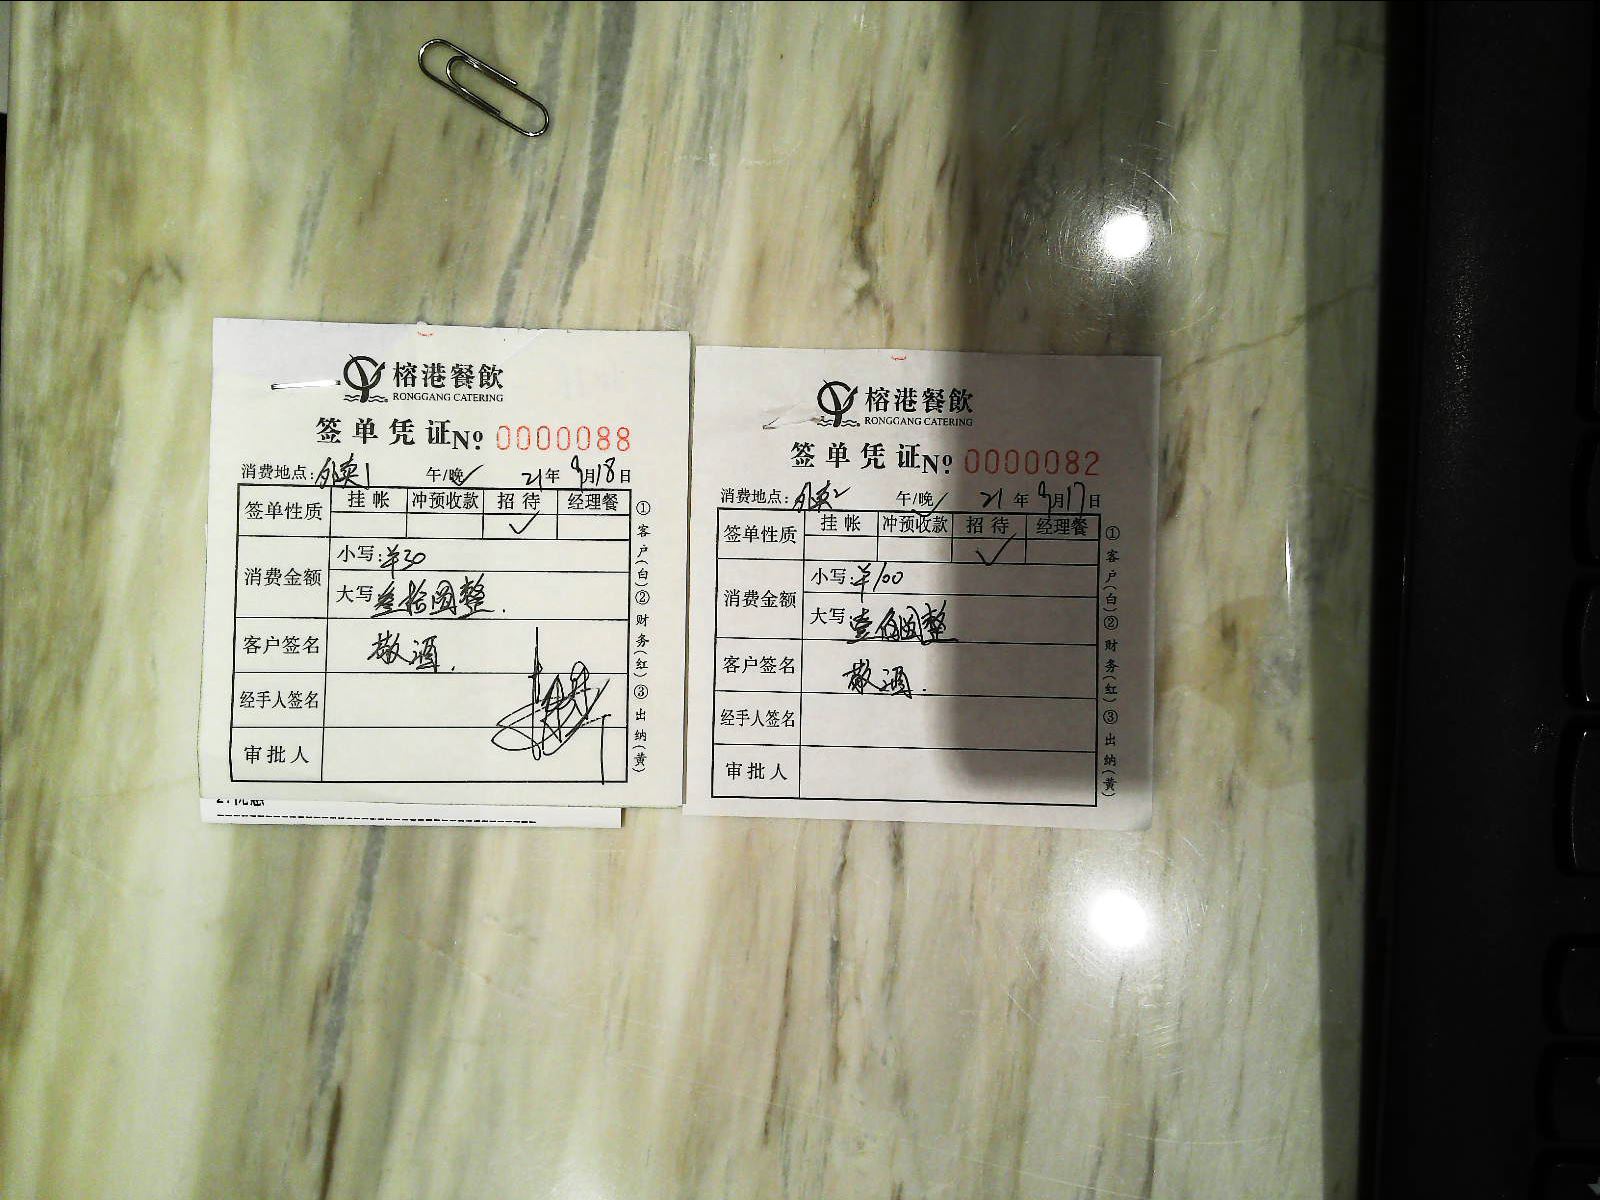 榕港餐飲
RONGGANG CATERING
签单凭证№ 0000088
消费地点:外卖1 午/晚✓ 21年9月18日
签单性质 挂帐 冲预收款 招待 经理餐
✓
消费金额 小写:¥30
大写叁拾圆整.
客户签名 敬酒.
经手人签名
审批人
①客户(白)②财务(红)③出纳(黄)
2.优惠
榕港餐飲
RONGGANG CATERING
签单凭证№ 0000082
消费地点:外卖2 午/晚✓ 21年9月17日
签单性质 挂帐 冲预收款 招待 经理餐
✓
消费金额 小写:¥100
大写壹佰圆整
客户签名 敬酒.
经手人签名
审批人
①客户(白)②财务(红)③出纳(黄)